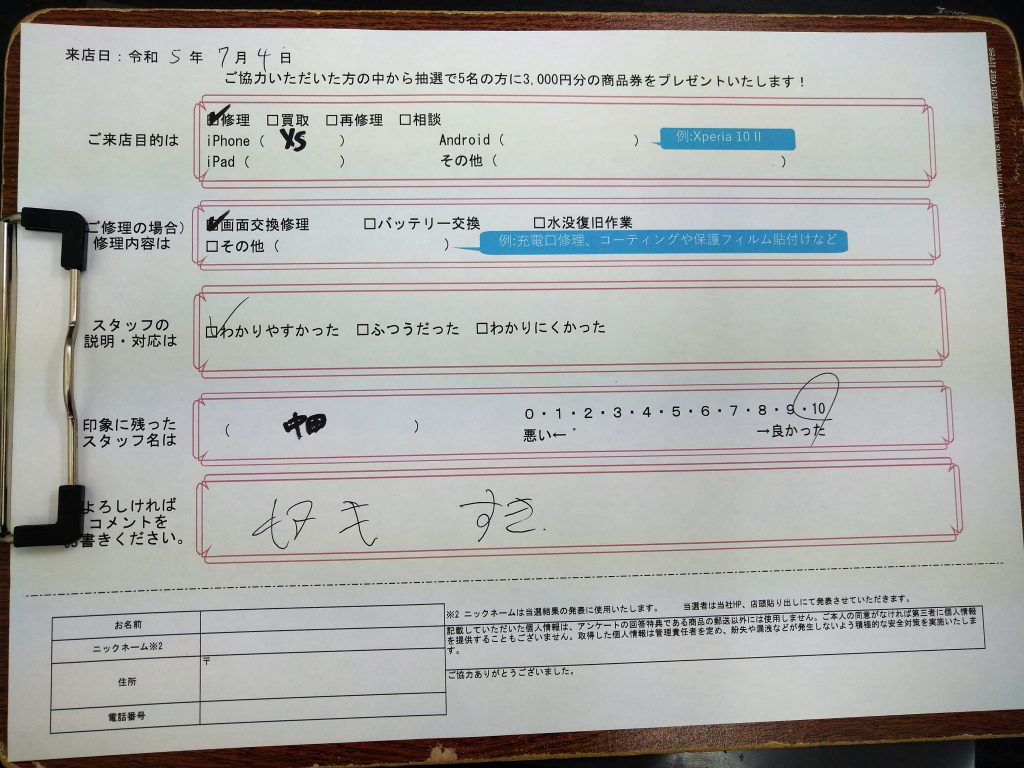 来店日：令和 5 年 7 月 4 日
ご協力いただいた方の中から抽選で5名の方に3,000円分の商品券をプレゼントいたします！
ご来店目的は
☑修理 □買取 □再修理 □相談
iPhone（ XS ） Android（ ） 例:Xperia 10 II
iPad（ ） その他（ ）
ご修理の場合）
修理内容は
☑画面交換修理 □バッテリー交換 □水没復旧作業
□その他（ ） 例:充電口修理、コーティングや保護フィルム貼付けなど
スタッフの
説明・対応は
☑わかりやすかった □ふつうだった □わかりにくかった
印象に残った
スタッフ名は
（ 中田 ） 0・1・2・3・4・5・6・7・8・9・10
悪い← →良かった
よろしければ
コメントを
お書きください。
すき.
お名前
ニックネーム※2
住所 〒
電話番号
※2 ニックネームは当選結果の発表に使用いたします。 当選者は当社HP、店頭貼り出しにて発表させていただきます。
記載していただいた個人情報は、アンケートの回答特典である商品の郵送以外には使用しません。ご本人の同意がなければ第三者に個人情報
を提供することもございません。取得した個人情報は管理責任者を定め、紛失や漏洩などが発生しないよう積極的な安全対策を実施いたしま
す。
ご協力ありがとうございました。